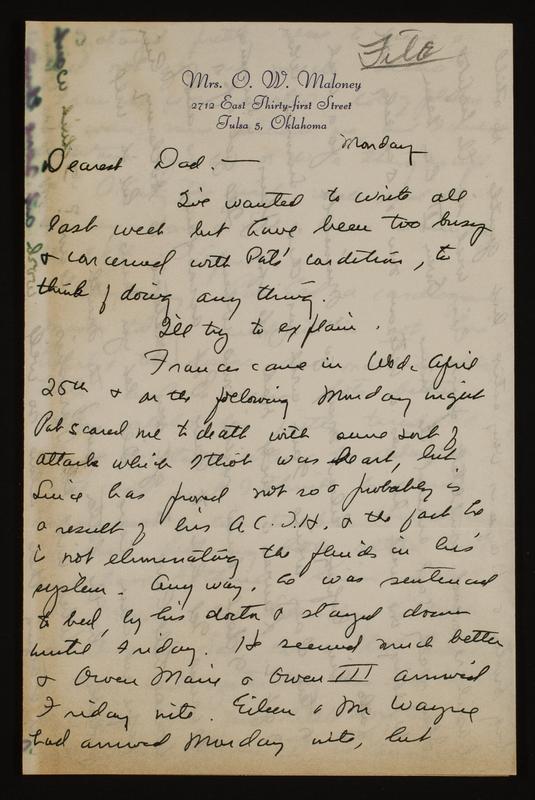 File
Mrs. O. W. Maloney
2712 East Thirty-first Street
Tulsa 5, Oklahoma
Monday
Dearest Dad. —
I've wanted to write all
last week but have been too busy
& concerned with Pats' condition, to
think of doing any thing.
I'll try to explain.
Frances came in Wed. April
25th & on the following Monday night
Pat scared me to death with some sort of
attack which I thot was heart, but
since has proved not so & probably is
a result of his A.C.T.H. & the fact he
is not eliminating the fluids in his
system. Any way, he was sentenced
to bed, by his doctor & stayed down
until Friday. He seemed much better
& Owen Marie & Owen III arrived
Friday nite. Eileen & Mr Wayne
had arrived Monday nite, but